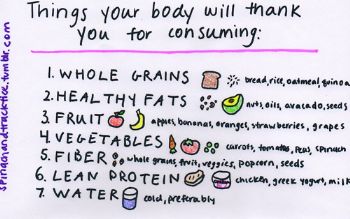 Things your body will thank
you for consuming:
1. WHOLE GRAINS bread, rice, oatmeal, quinoa
2. HEALTHY FATS nuts, oils, avacado, seeds
3. FRUIT apples, bananas, oranges, strawberries, grapes
4. VEGETABLES carrots, tomatoes, peas, spinach
5. FIBER whole grains, fruit, veggies, popcorn, seeds
6. LEAN PROTEIN chicken, greek yogurt, milk
7. WATER cold, preferably